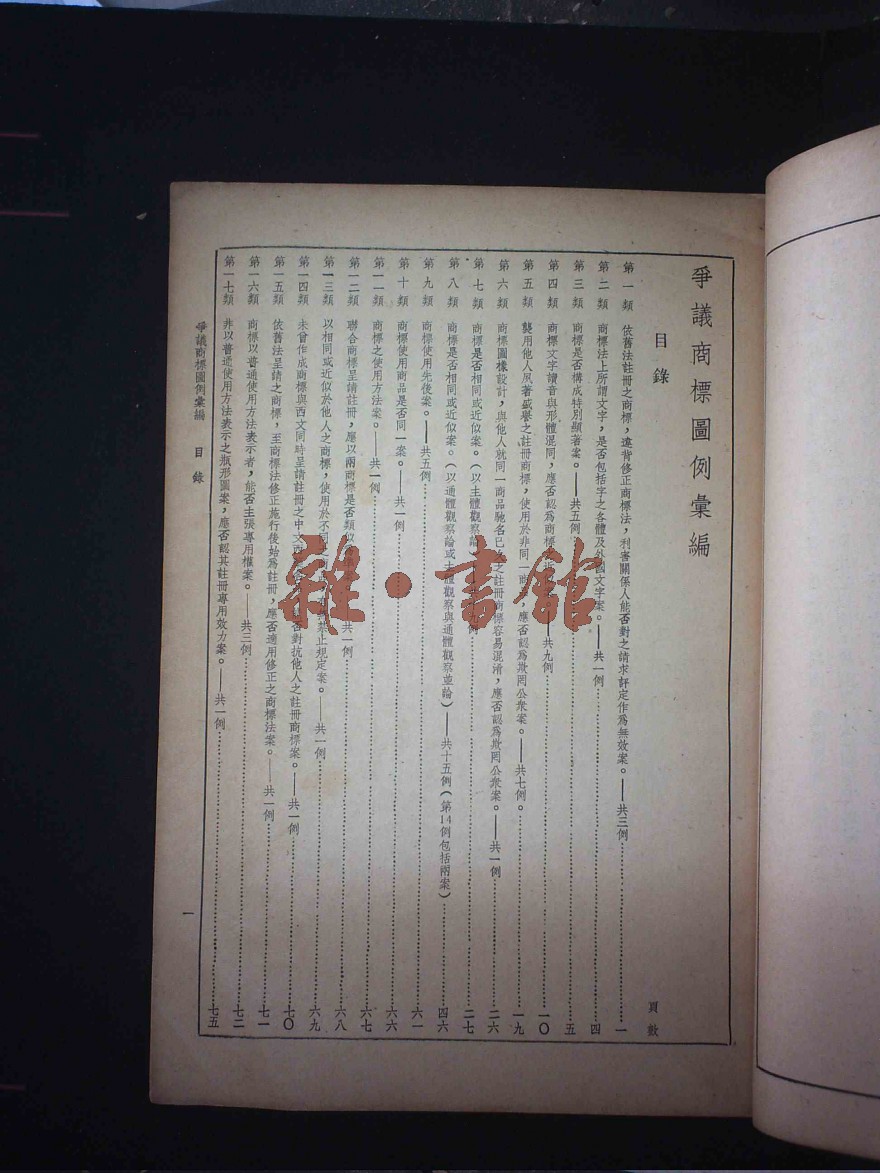 爭議商標圖例彙編
目錄
頁數
第一類 依舊法註冊之商標，違背修正商標法，利害關係人能否對之請求評定作為無效案。——共三例……一
第二類 商標法上所謂文字，是否包括字之各體及外國文字案。——共一例……四
第三類 商標是否構成特別顯著案。——共五例……五
第四類 商標文字讀音與形體混同，應否認為商標近 共九例……一〇
第五類 襲用他人夙著盛譽之註冊商標，使用於非同一商 應否認為欺罔公衆案。——共七例。……一九
第六類 商標圖樣設計，與他人就同一商品馳名已 之註冊商標容易混淆，應否認為欺罔公衆案。——共一例……二六
第七類 商標是否相同或近似案。（以主體觀察論 例……二七
第八類 商標是否相同或近似案。（以通體觀察論或主體觀察與通體觀察並論）——共十五例（第14例包括兩案）……四六
第九類 商標使用先後案。——共五例……六一
第十類 商標使用商品是否同一案。——共一例……六六
第一一類 商標之使用方法案。——共一例……六七
第一二類 聯合商標呈請註冊，應以兩商標是否類似 共一例……六八
第一三類 以相同或近似於他人之商標，使用於不同之商 禁止規定案。——共一例……六九
第一四類 未曾作成商標與西文同時呈請註冊之中文 否對抗他人之註冊商標案。——共一例……七〇
第一五類 依舊法呈請之商標，至商標法修正施行後始為註冊，應否適用修正之商標法案。——共一例……七一
第一六類 商標以普通使用方法表示者，能否主張專用權案。——共三例……七二
第一七類 非以普通使用方法表示之瓶形圖案，應否認其註冊專用效力案。——共一例……七五
爭議商標圖例彙編 目錄
一
雜·書館